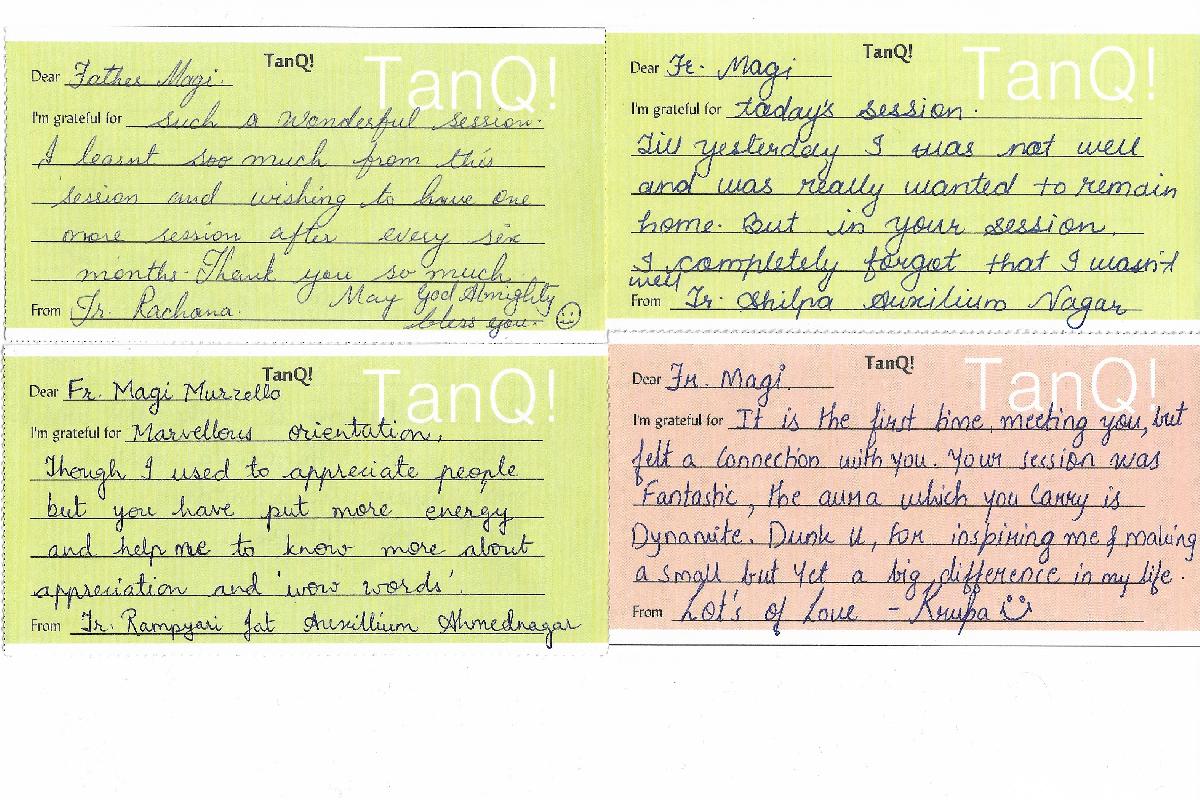 TanQ!
TanQ!
Dear Father Magi.
I'm grateful for such a wonderful session.
I learnt soo much from this
session and wishing to have one
more session after every six
months. Thank you so much.
May God Almighty
bless you.
From Tr. Rachana.
TanQ!
TanQ!
Dear Fr. Magi
I'm grateful for today's session.
Till yesterday I was not well
and was really wanted to remain
home. But in your session,
I completely forgot that I wasn't
well
From Tr. Shilpa Auxilium Nagar
TanQ!
TanQ!
Dear Fr. Magi Murzello
I'm grateful for Marvellous orientation,
Though I used to appreciate people
but you have put more energy
and help me to know more about
appreciation and 'wow words'.
From Tr. Rampyari Jat Auxillium Ahmednagar
TanQ!
TanQ!
Dear Fr. Magi.
I'm grateful for It is the first time, meeting you, but
felt a Connection with you. Your session was
Fantastic, the aura which you Carry is
Dynamite. Dunk U, for inspiring me & making
a small but yet a big difference in my life.
From Lot's of Love - Krupa